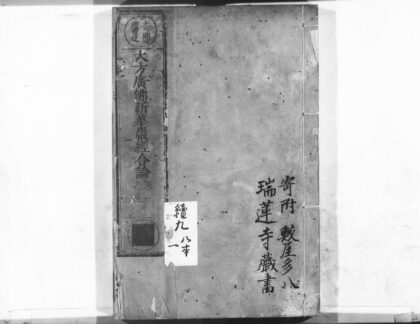 寄附 數屋多八
瑞蓮寺藏書
大方廣佛新華嚴經合論
續九
八本
一